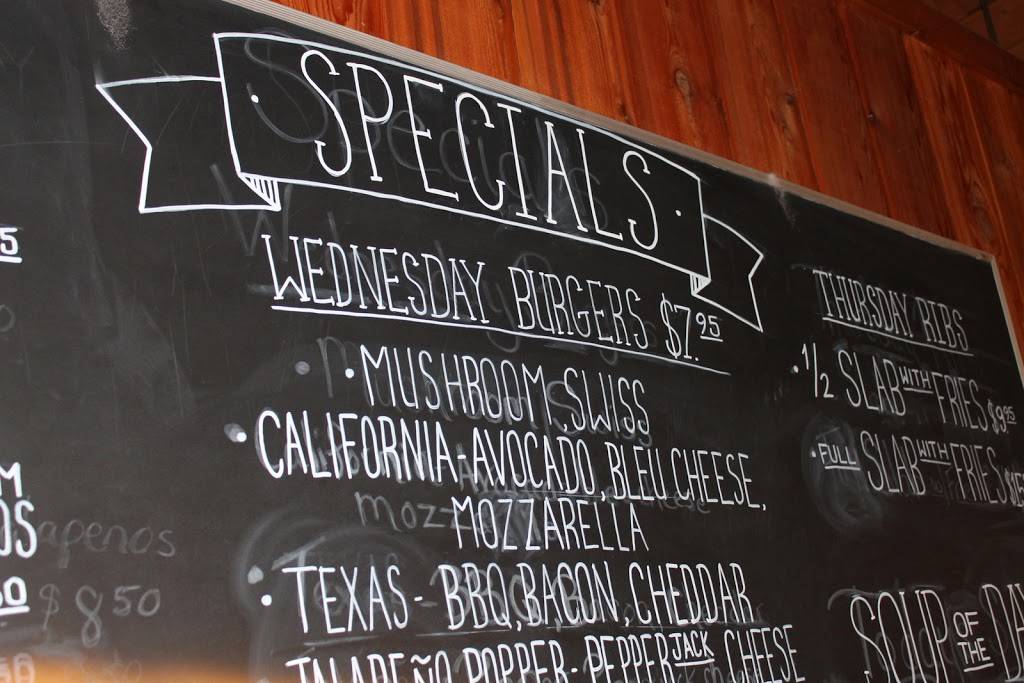 SPECIALS
WEDNESDAY BURGERS $7.95
• MUSHROOM, SWISS
• CALIFORNIA - AVOCADO, BLEU CHEESE,
MOZZARELLA
• TEXAS - BBQ, BACON, CHEDDAR
JALAPEÑO POPPER - PEPPER JACK CHEESE
THURSDAY RIBS
• 1/2 SLAB WITH FRIES $9.95
• FULL SLAB WITH FRIES
SOUP OF THE DA
5
M
OS
50
apenos
$8.50